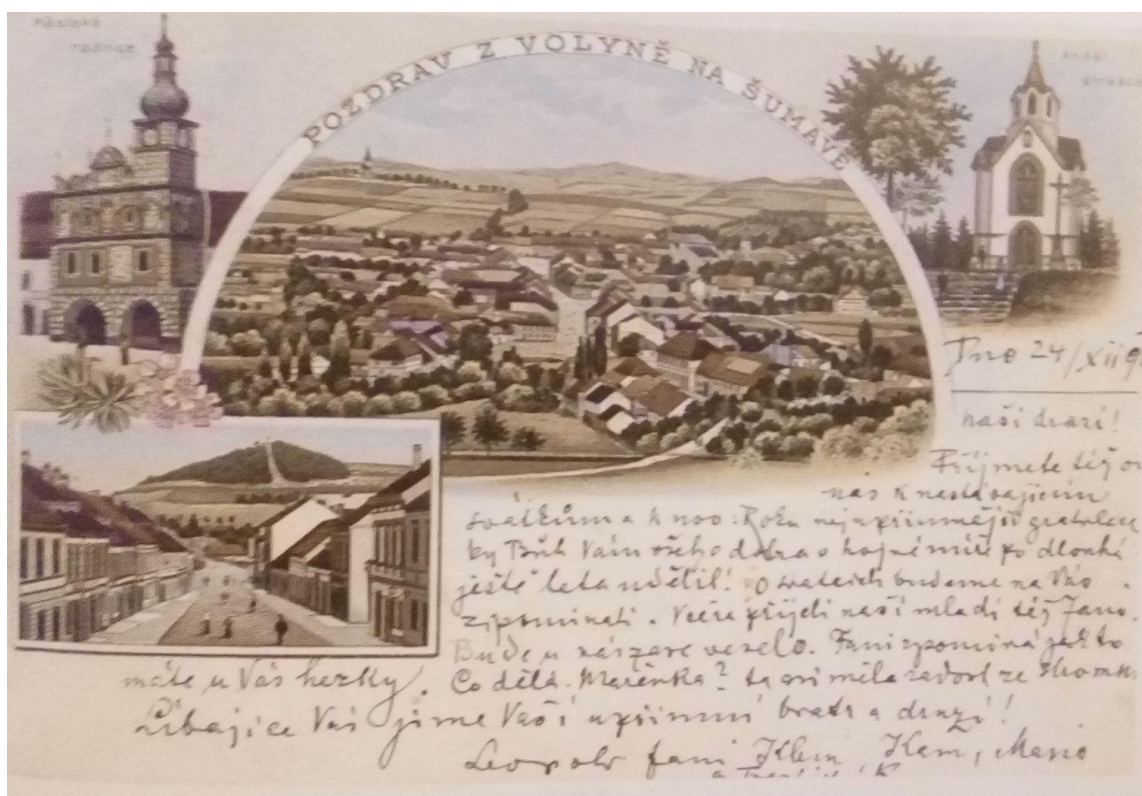 Městská
radnice
POZDRAV Z VOLYNĚ NA ŠUMAVĚ
Anděl
Dne 24/xii 9
naši drazí!
Přijmete též od
nás k nastávajícím
svátkům a k nov. Roku nejupřímnější gratulace
by Bůh Vám všeho dobra v hojné míře po dlouhá
ještě leta udělil! O svátcích budeme na Vás
zpomínati. Včera přijeli naši mladí též Jano.
Bude u nás zase veselo. Fani zpomíná jak to
máte u Vás hezky. Co dělá Mařenka? ta asi měla radost ze
Líbajíce Vás jsme Vaši upřímní bratr a drazí!
Leopold Fani Klem, Kam, Mario